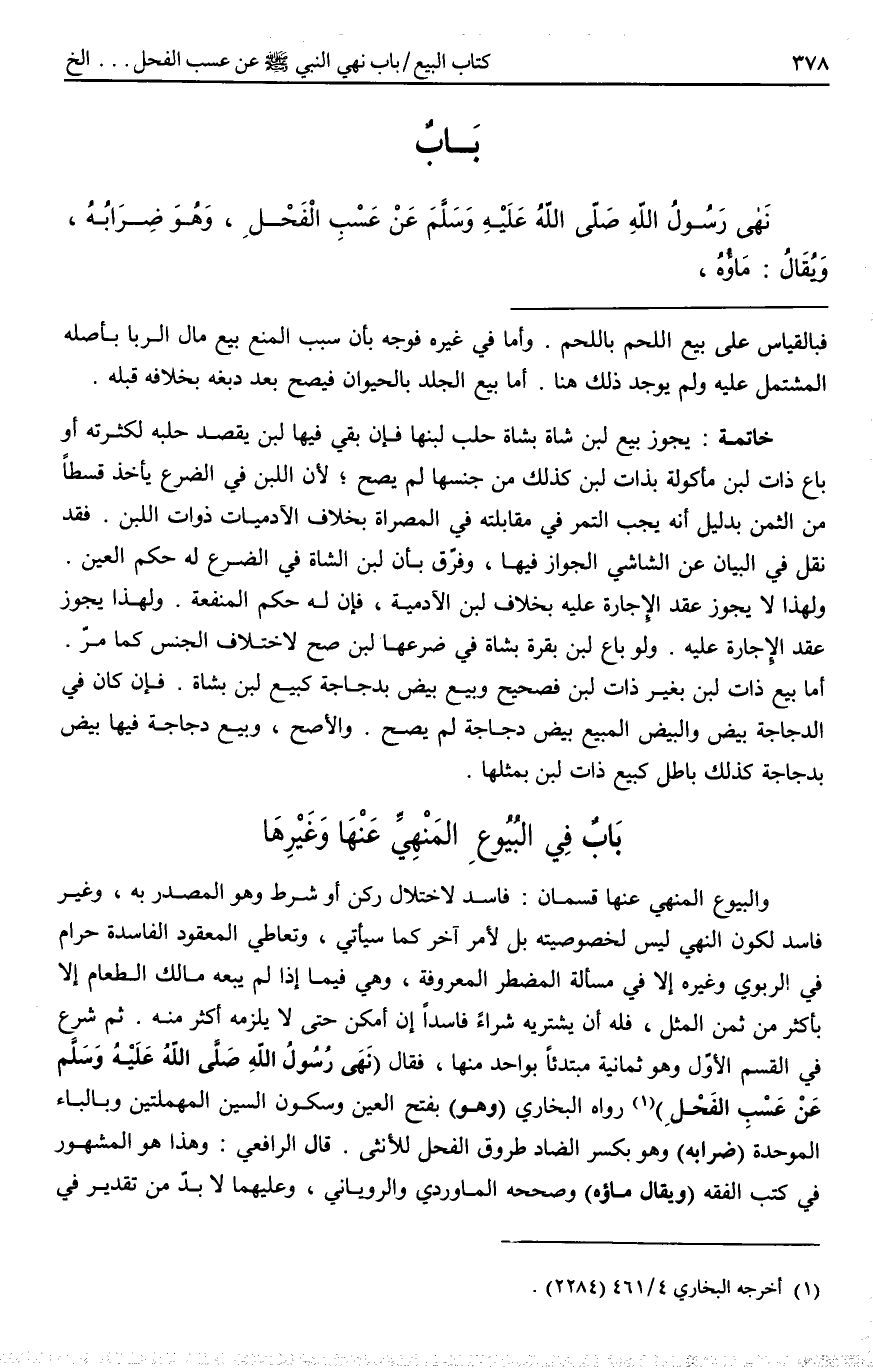 ٣٧٨ كتاب البيع/باب نهي النبي ﷺ عن عسب الفحل... الخ
بَـابٌ
نَهٰى رَسُولُ اللّهِ صَلّى اللّهُ عَلَيْهِ وَسَلَّمَ عَنْ عَسْبِ الْفَحْلِ ، وَهُوَ ضِرَابُهُ ،
وَيُقَالُ : مَاؤُهُ ،
فبالقياس على بيع اللحم باللحم . وأما في غيره فوجه بأن سبب المنع بيع مال الربا بأصله
المشتمل عليه ولم يوجد ذلك هنا . أما بيع الجلد بالحيوان فيصح بعد دبغه بخلافه قبله .
خاتمة : يجوز بيع لبن شاة بشاة حلب لبنها فإن بقي فيها لبن يقصد حلبه لكثرته أو
باع ذات لبن مأكولة بذات لبن كذلك من جنسها لم يصح ؛ لأن اللبن في الضرع يأخذ قسطاً
من الثمن بدليل أنه يجب التمر في مقابلته في المصراة بخلاف الآدميات ذوات اللبن . فقد
نقل في البيان عن الشاشي الجواز فيها ، وفرّق بأن لبن الشاة في الضرع له حكم العين .
ولهذا لا يجوز عقد الإجارة عليه بخلاف لبن الآدمية ، فإن له حكم المنفعة . ولهذا يجوز
عقد الإجارة عليه . ولو باع لبن بقرة بشاة في ضرعها لبن صح لاختلاف الجنس كما مرّ .
أما بيع ذات لبن بغير ذات لبن فصحيح وبيع بيض بدجاجة كبيع لبن بشاة . فإن كان في
الدجاجة بيض والبيض المبيع بيض دجاجة لم يصح . والأصح ، وبيع دجاجة فيها بيض
بدجاجة كذلك باطل كبيع ذات لبن بمثلها .
بَابٌ فِي الْبُيُوعِ المَنْهِيِّ عَنْهَا وَغَيْرِهَا
والبيوع المنهي عنها قسمان : فاسد لاختلال ركن أو شرط وهو المصدر به ، وغير
فاسد لكون النهي ليس لخصوصيته بل لأمر آخر كما سيأتي ، وتعاطي المعقود الفاسدة حرام
في الربوي وغيره إلا في مسألة المضطر المعروفة ، وهي فيما إذا لم يبعه مالك الطعام إلا
بأكثر من ثمن المثل ، فله أن يشتريه شراءً فاسداً إن أمكن حتى لا يلزمه أكثر منه . ثم شرع
في القسم الأوّل وهو ثمانية مبتدئاً بواحد منها ، فقال (نَهَى رُسُولُ اللّهِ صَلَّى اللّهُ عَلَيْهُ وَسَلَّم
عَنْ عَسْبِ الفَحْلِ)(١) رواه البخاري (وهو) بفتح العين وسكون السين المهملتين وبالباء
الموحدة (ضرابه) وهو بكسر الضاد طروق الفحل للأنثى . قال الرافعي : وهذا هو المشهور
في كتب الفقه (ويقال ماؤه) وصححه الماوردي والروياني ، وعليهما لا بدّ من تقدير في
(١) أخرجه البخاري ٤/ ٤٦١ (٢٢٨٤) .